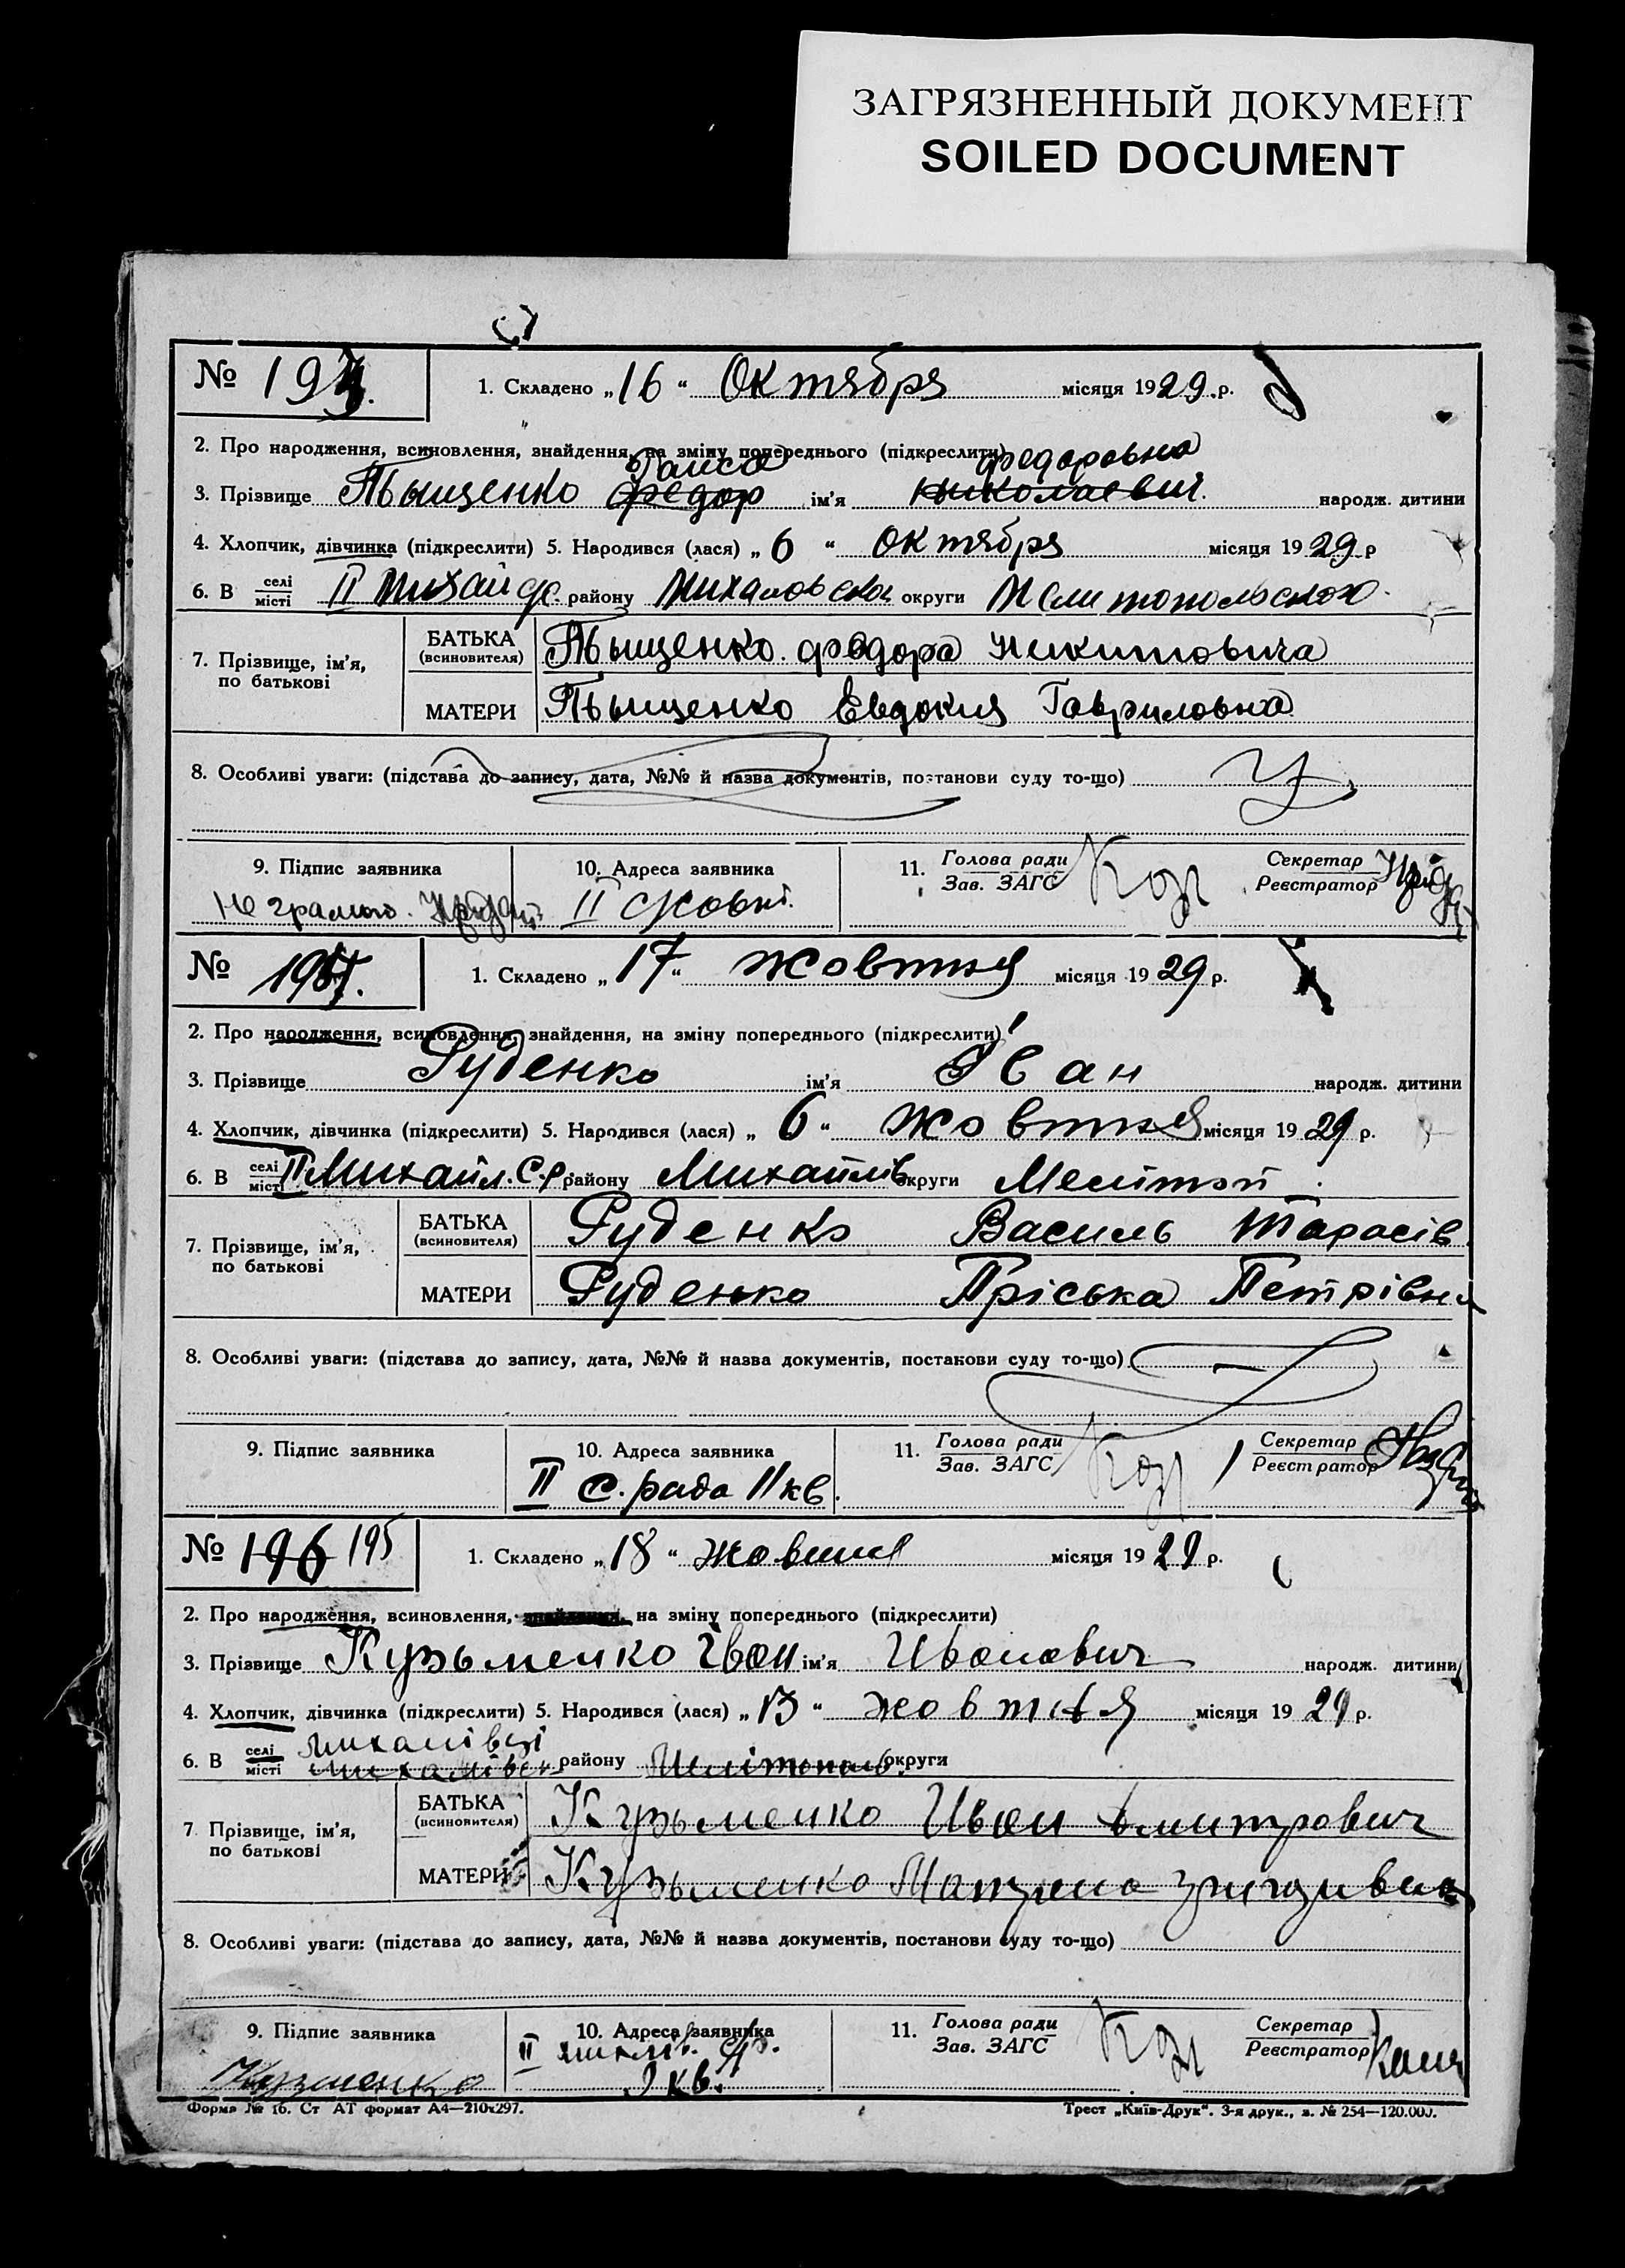 ЗАГРЯЗНЕННЫЙ ДОКУМЕНТ
SOILED DOCUMENT
№ 193. 1. Складено „16“ Октября місяця 1929.р.
2. Про народження, всиновлення, знайдення, на зміну попереднього (підкреслити)
Раиса Федоровна
3. Прізвище Тыщенко Федор ім’я Николаевич. народж. дитини
4. Хлопчик, дівчинка (підкреслити) 5. Народився (лася) „6“ октября місяця 1929 р
6. В селі місті II Михайл району округи Мелитопольского.
7. Прізвище, ім’я, по батькові БАТЬКА (всиновителя) Тыщенко. Федора Никитовича
МАТЕРИ Тыщенко Евдокия Гавриловна
8. Особливі уваги: (підстава до запису, дата, №№ й назва документів, постанови суду то-що)
9. Підпис заявника 10. Адреса заявника 11. Голова ради Зав. ЗАГС Секретар Реєстратор
Не грамот. II
№ 194. 1. Складено „17“ жовтня місяця 1929 р.
2. Про народження, всиновлення, знайдення, на зміну попереднього (підкреслити)
3. Прізвище Руденко ім’я Іван народж. дитини
4. Хлопчик, дівчинка (підкреслити) 5. Народився (лася) „6“ жовтня місяця 1929 р.
6. В селі місті II Михайл. С.р. району Михайлів округи Мелітоп.
7. Прізвище, ім’я, по батькові БАТЬКА (всиновителя) Руденко Василь Тарасів
МАТЕРИ Руденко Пріська Петрівна
8. Особливі уваги: (підстава до запису, дата, №№ й назва документів, постанови суду то-що)
9. Підпис заявника 10. Адреса заявника 11. Голова ради Зав. ЗАГС Секретар Реєстратор
II с. рада 11 кв.
№ 196 195 1. Складено „18“ жовтня місяця 1929 р.
2. Про народження, всиновлення, знайдення, на зміну попереднього (підкреслити)
3. Прізвище Кузьменко Іван ім’я Иванович народж. дитини
4. Хлопчик, дівчинка (підкреслити) 5. Народився (лася) „13“ жовтня місяця 1929 р.
Михалівці
6. В селі місті району Мелітополь. округи
7 Прізвище, ім’я, по батькові БАТЬКА (всиновителя) Кузьменко Иван Дмитрович
МАТЕРИ Кузьменко Матрена
8. Особливі уваги: (підстава до запису, дата, №№ й назва документів, постанови суду то-що)
9. Підпис заявника 10. Адреса заявника 11. Голова ради Зав. ЗАГС Секретар Реєстратор
Кузменко II кв.
Форма № 16. Ст АТ формат А4—210х297. Трест „Київ-Друк“. 3-я друк., з. № 254—120.000.